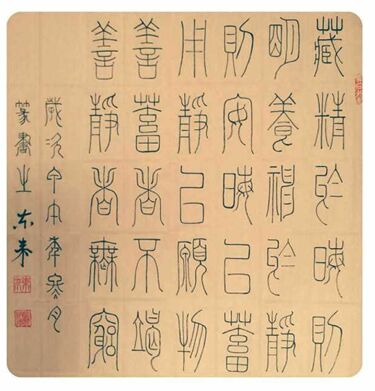 藏精於晦則
明養神於靜
則安晦以蓄
用靜以應物
善蓄者不竭
善靜者無窮
歲次甲午年寒月
篆書之 东来